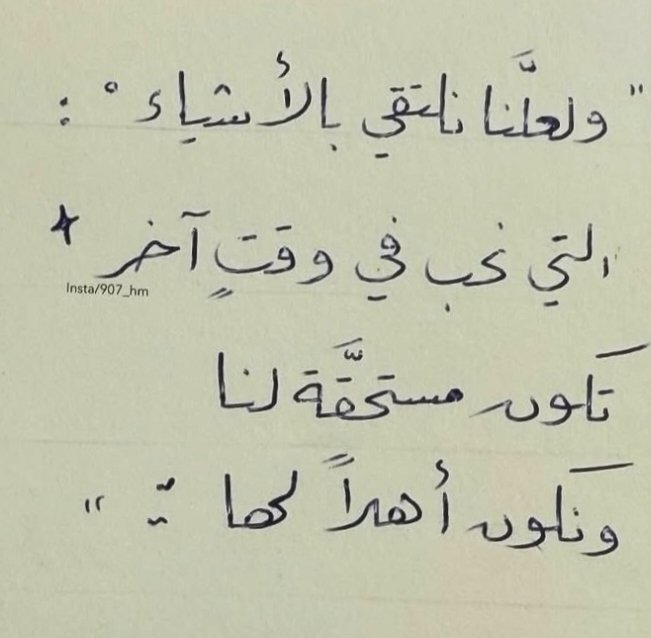 " ولعلَّنا نلتقي بالأشياء ° :
التي نحب في وقتٍ آخر *
Insta/907_hm
تكون مستحقَّة لنا
ونكون أهلاً لها "